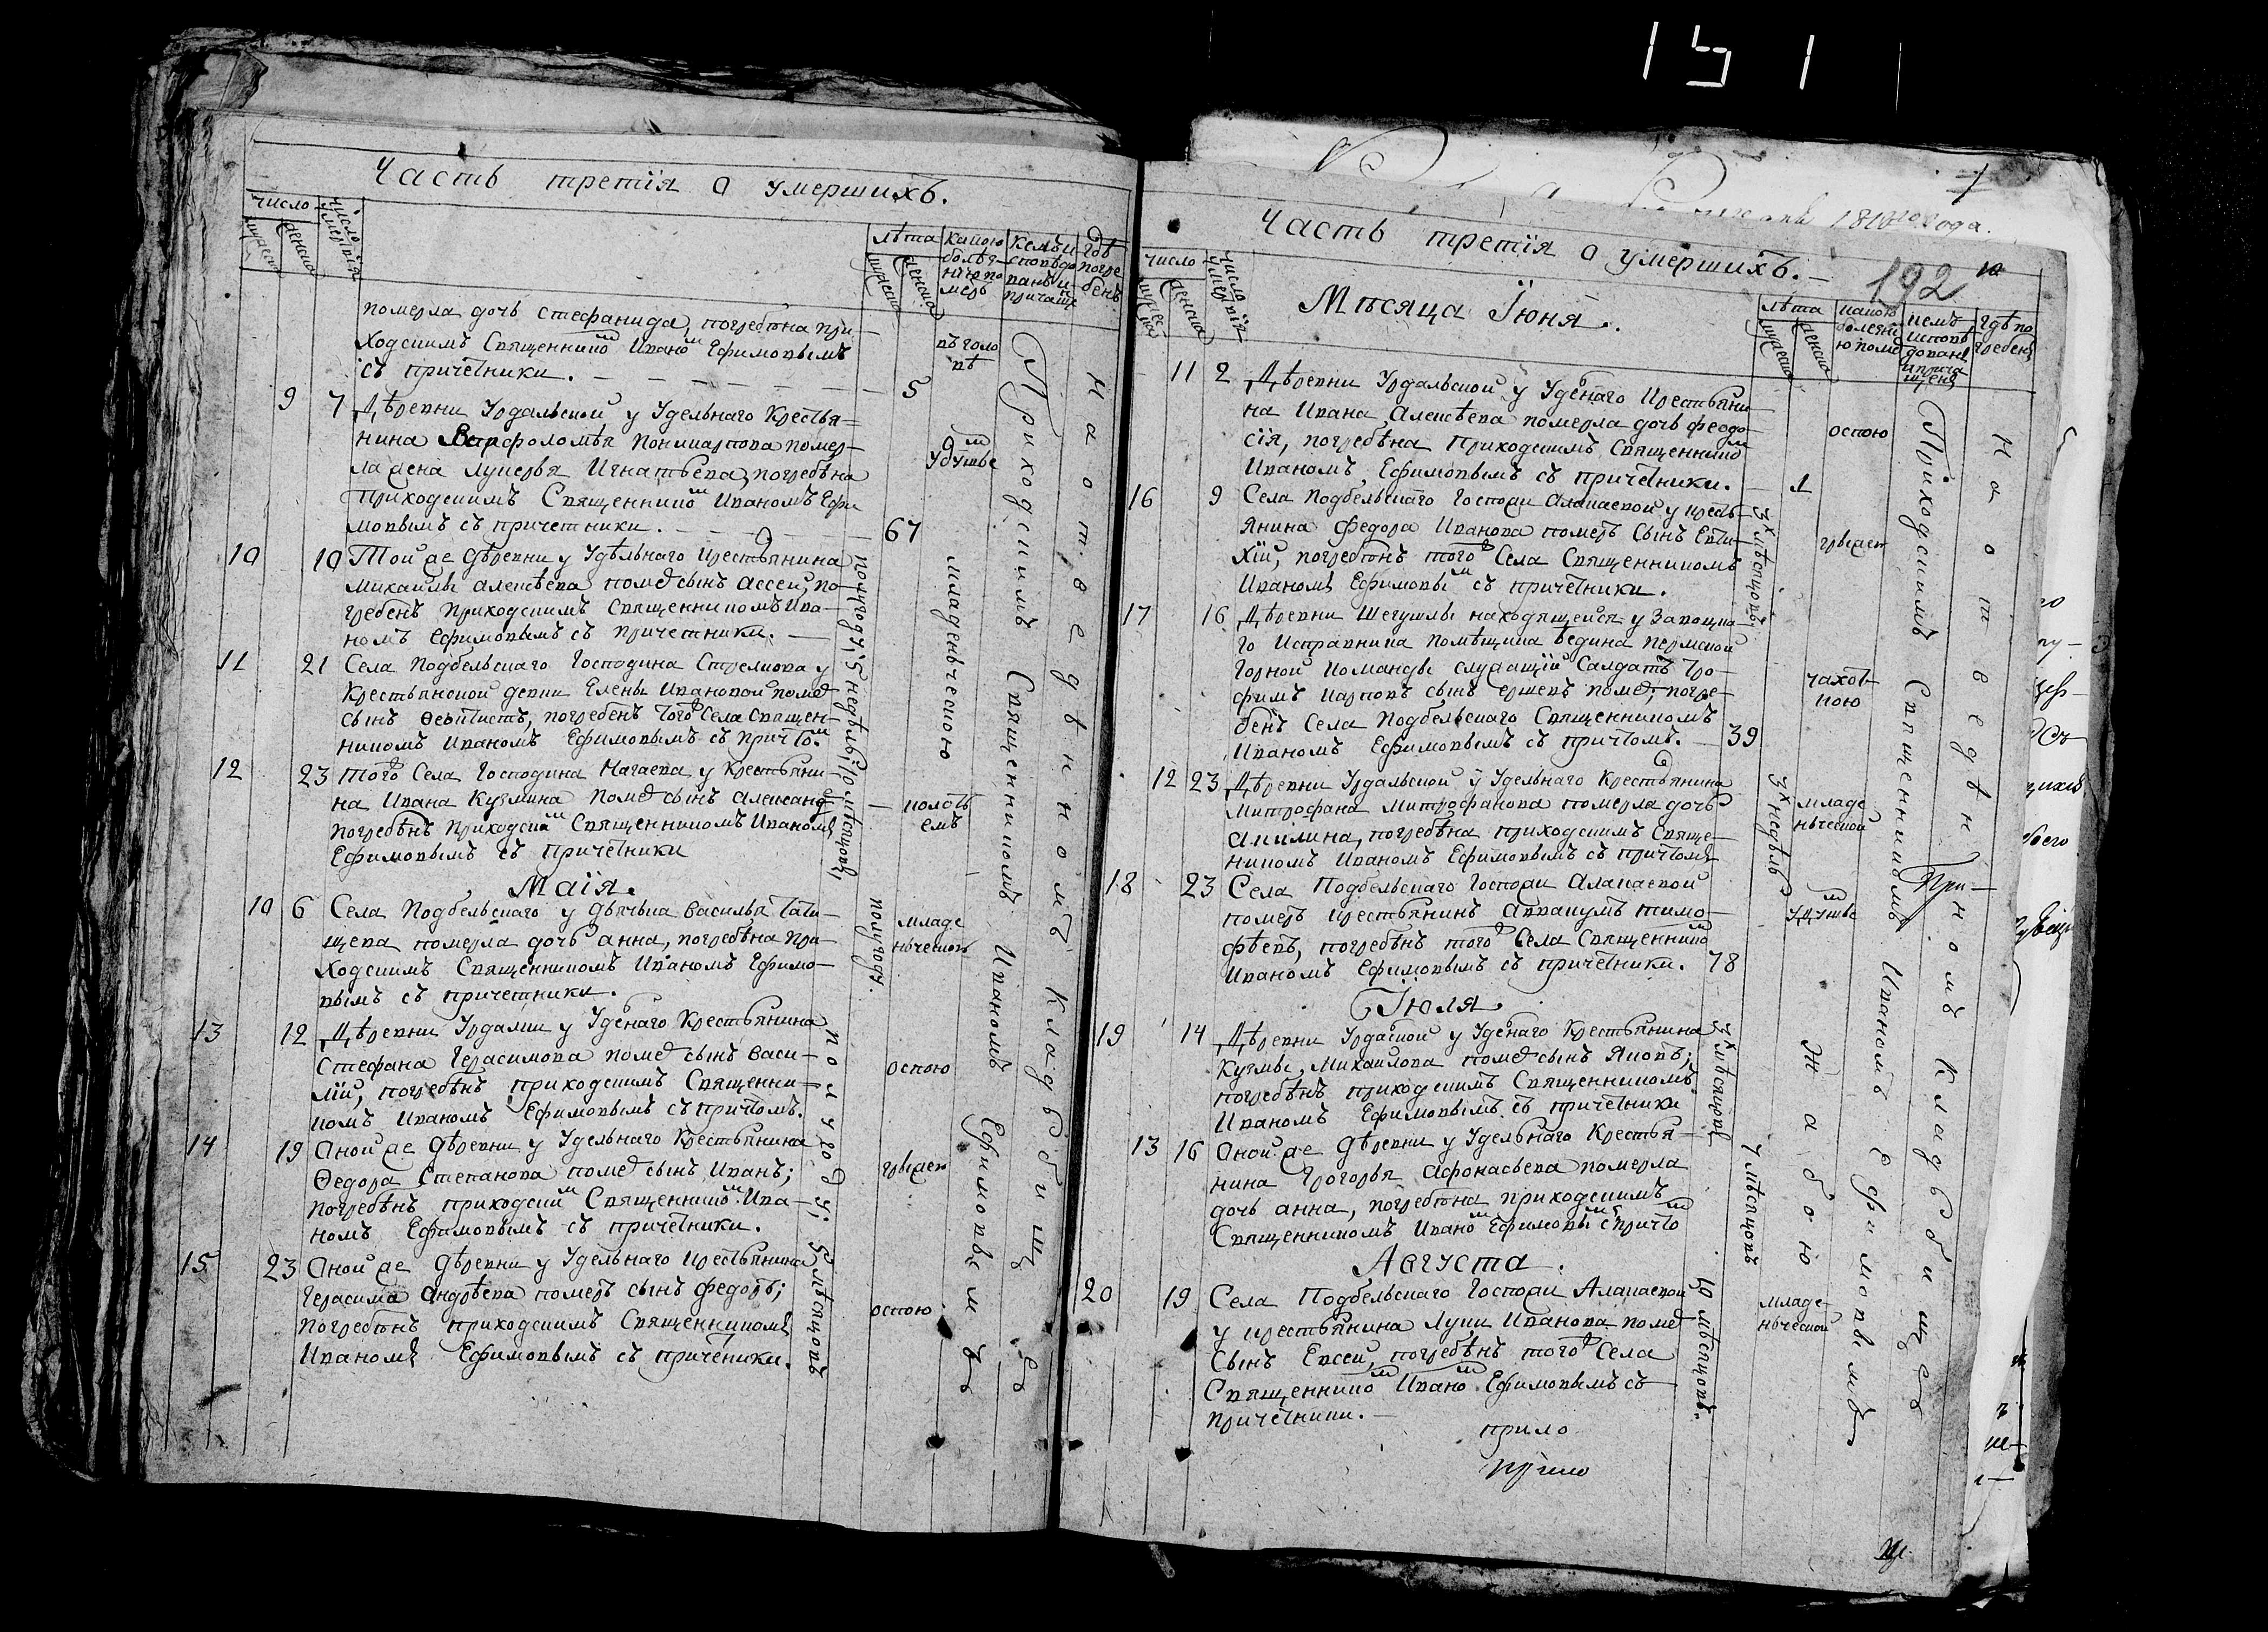 151
Часть третїя о умершихъ.
число
число умертвїя
лѣта
какою болѣзнїю померъ
кемъ исповѣданъ и причащенъ
гдѣ погребенъ
мужеска
женска
мужеска
женска
померла дочь Стефанида, погребѣна при-
ходскимъ Священнико͞м Ивано͞м Ефимовымъ
съ причетники.
5
въ голо
вѣ
9 7 Дѣревни Урдальской у Удельнаго Крестья-
нина Варфоломѣя Понкиарпова помер-
ла жена Лукерья Игнатьева, погребѣна
приходскимъ Священнико͞м Иваномъ Ефи
мовымъ съ причетники.
67
Удушье͞м
10 10 Той же дѣревни у Удѣльнаго крестьянина
Михайлы Алексѣева поме сынъ Ассеи, по-
гребенъ приходскимъ Священникомъ Ива-
номъ Ефимовымъ съ причетники.
полугоду;
младеньческою
11 21 Села Подбельскаго Господина Стрелкова у
Крестьянской девки Елены Ивановой поме
сынъ Феѡктистъ, погребенъ того Села Священ-
никомъ Иваномъ Ефимовымъ съ причто͞м.
5 недѣль;
12 23 того Села Господина Нагаева у Крестьяни
на Ивана Кузмина поме сынъ Александ
погребѣнъ приходски͞м Священникомъ Иваномъ
Ефимовымъ съ причетники
10 мѣсяцовъ;
колоть
емъ
Маїя.
10 6 Села Подбельскаго у дьячька Василья Тати-
щева померла дочь Анна, погребѣна при-
ходскимъ Священникомъ Иваномъ Ефимо-
вымъ съ причетники.
полугоду.
младе
ньческою
13 12 Дѣревни Урдалки у Уденаго Крестьянина
Стефана Герасимова поме сынъ Васи-
лїй, погребѣнъ приходскимъ Священни-
комъ Иваномъ Ефимовымъ съ причтомъ.
полугоду;
оспою
14 19 Оной же дѣревни у Удельнаго Крестьянина
Ѳедора Степанова поме сынъ Иванъ;
погребѣнъ приходски͞м Священнико͞м Ива-
номъ Ефимовымъ съ причетники.
грыжею
15 23 Оной же дѣревни у Удельнаго крестьянина
Герасима Андрѣева померъ сынъ Федоръ;
погребѣнъ приходскимъ Священникомъ
Иваномъ Ефимовымъ съ причетники.
5 мѣсяцовъ
оспою
Приходскимъ Священникомъ Иваномъ Ефимовымъ
На отведѣнномъ кладьбище
1810го года.
Часть третїя о умершихъ.
192
число
число умертвїя
Мѣсяца Їюня.
лѣта
какою болезнию поме
кемъ исповѣдованъ и причащенъ
гдѣ погребенъ
11 2 Дѣревни Урдальской у Уденаго Крестьяни
на Ивана Алексѣева померла дочь Феодо-
сїя, погребѣна приходскимъ Священнико͞м
Иваномъ Ефимовымъ съ причетники.
1
оспою
16 9 Села Подбельскаго Госпожи Алакаевой у кресть-
янина Федора Иванова померъ сынъ Евти-
хїй, погребѣнъ того Села Священникомъ
Иваномъ Ефимовы͞м съ причетники.
3х мѣсяцовъ.
грыжею
17 16 Дѣревни Шегушлы находящейся у Заводцка-
го Исправника помѣщика Бедина Пермской
горной команды служащїй Салдатъ Тро-
фимъ Карповъ сынъ Ершевъ поме, погре-
бенъ Села Подбельскаго Священникомъ
Иваномъ Ефимовымъ съ причтомъ.
39
чахот
кою
12 23 Дѣревни Урдальской у Удельнаго Крестьянина
Митрофана Митрофанова померла дочь
Акилина, погребѣна приходскимъ Свяще-
никомъ Иваномъ Ефимовымъ съ причтомъ
3х недѣль
младе
ньческой
18 23 Села Подбельскаго Госпожи Алакаевой
померъ крестьянинъ Аввакумъ Тимо-
фѣевъ, погребѣнъ того Села Священнико͞м
Иваномъ Ефимовымъ съ причетники.
78
Удушье͞м
Їюля.
19 14 Дѣревни Урдаской у Уденаго Крестьянина
Кузмы, Михаилова поме сынъ Яковъ;
погребѣнъ приходскимъ Священникомъ
Иваномъ Ефимовымъ съ причетники
3х мѣсяцовъ
Жабою
13 16 Оной же дѣревни у Удельнаго Крестья-
нина Грогорья Афонасьева померла
дочь Анна, погребѣна приходскимъ
Священникомъ Ивано͞м Ефимовы͞м с причто͞м
7 мѣсяцовъ
Августа.
20 19 Села Подбельскаго Госпожи Алакаевой
у крестьянина Луки Иванова поме
сынъ Евсеи, погребѣнъ того Села
Священнико͞м Ивано͞м Ефимовымъ съ
причетники.
10 мѣсяцовъ.
младе-
ньческой
Приходскимъ Священникомъ Иваномъ Ефимовымъ
На отведѣнномъ кладьбище
При-